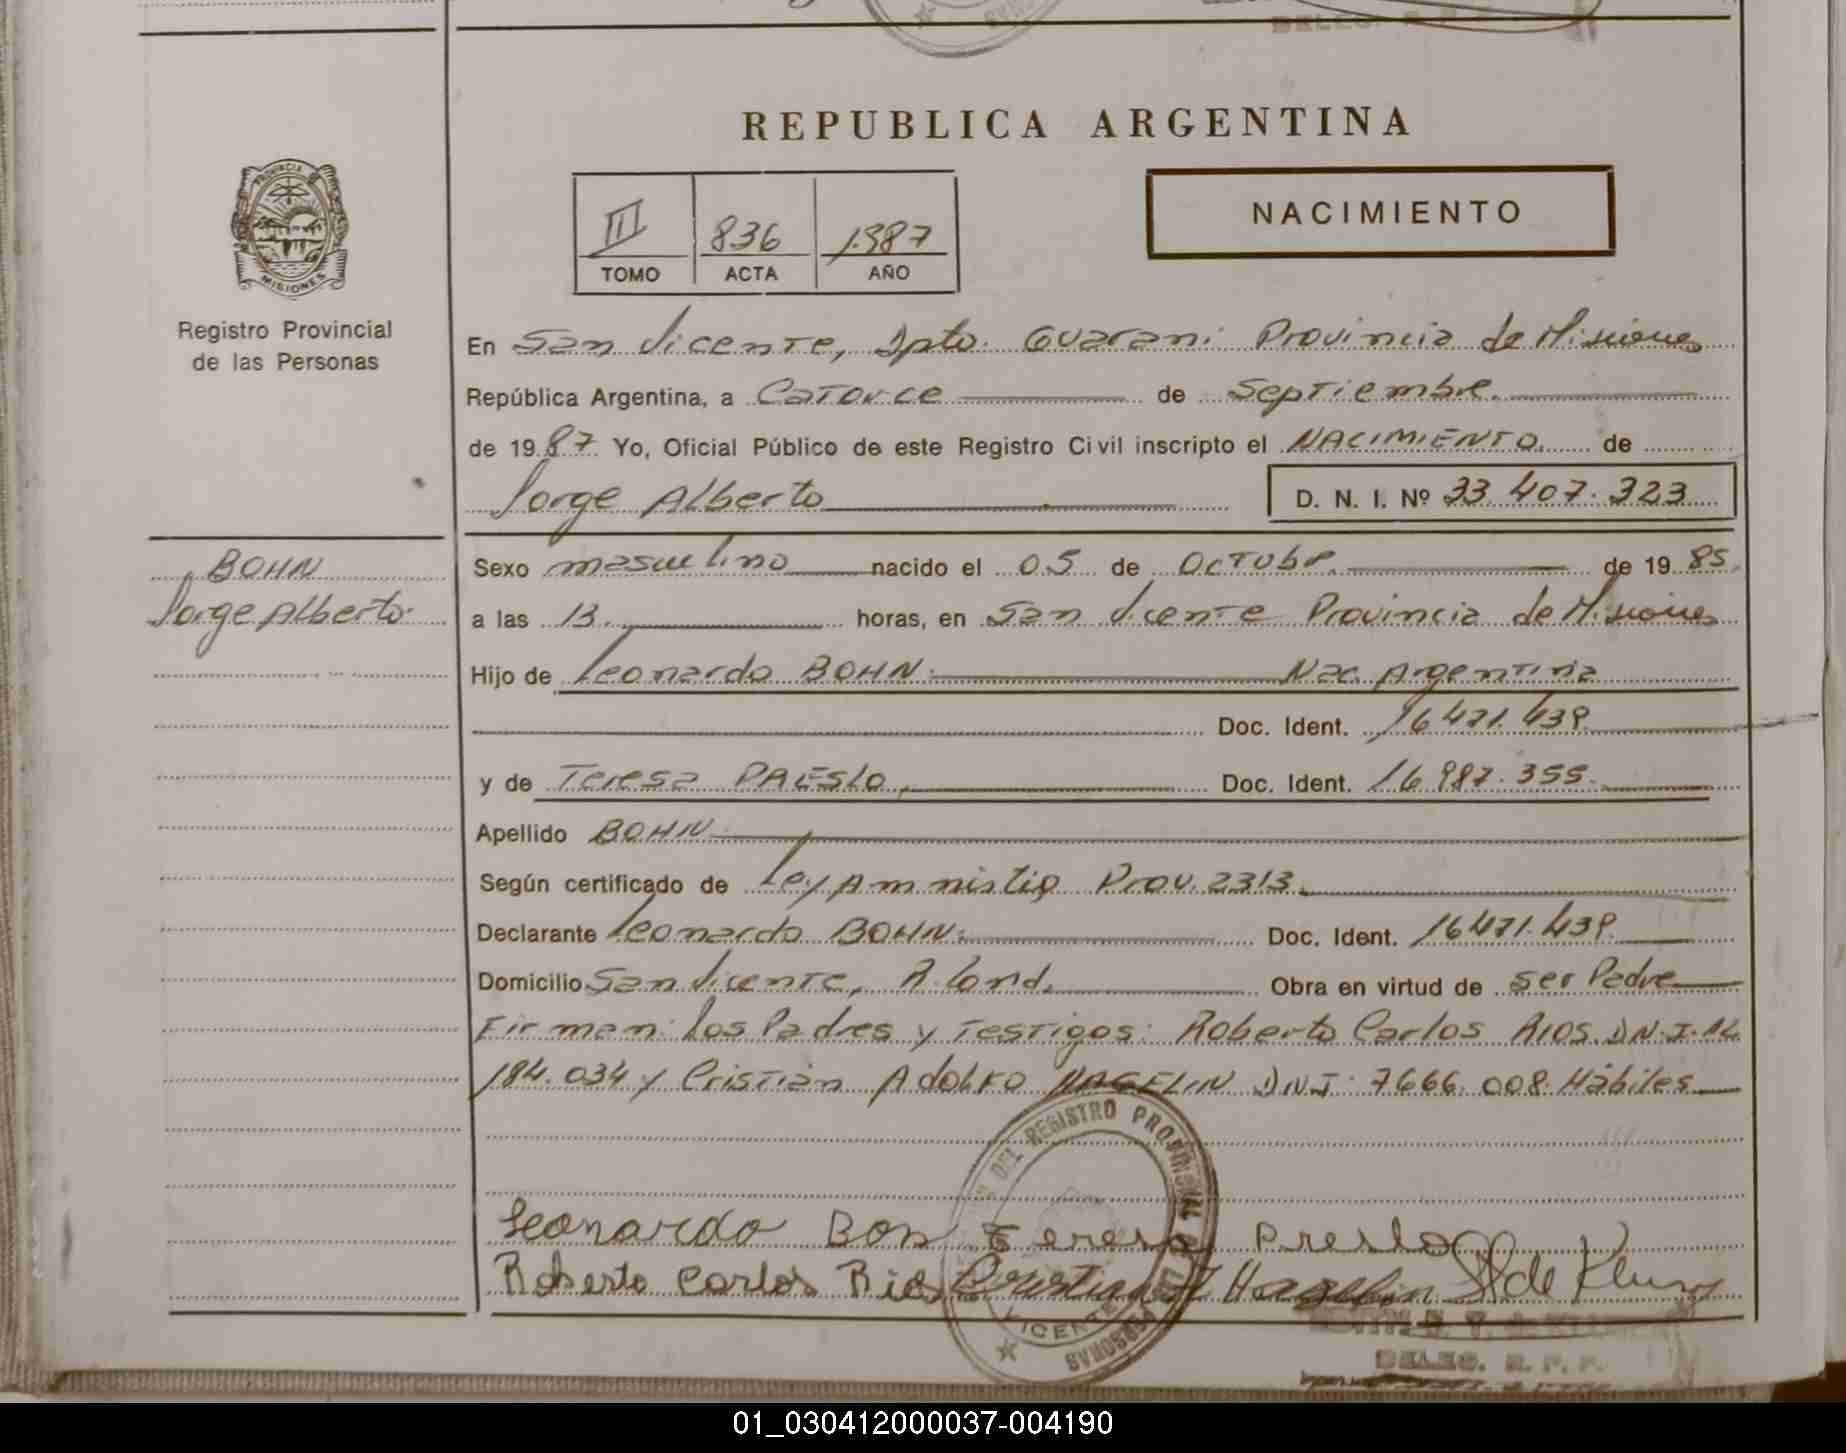 REPUBLICA ARGENTINA
NACIMIENTO
III 836 1.987
TOMO ACTA AÑO
PROVINCIA D
MISIONES
Registro Provincial
de las Personas
En San Vicente, Dpto. Guarani Provincia de Misiones
República Argentina, a Catorce de Septiembre.
de 1987 Yo, Oficial Público de este Registro Civil inscripto el NACIMIENTO. de
Jorge Alberto D. N. I. Nº 33.407.323
BOHN
Jorge Alberto.
Sexo masculino nacido el 05 de Octubr. de 1985.
a las 13. horas, en San Vicente Provincia de Misiones
Hijo de Leonardo BOHN. Nac. Argentina
Doc. Ident. 16.471.439.
y de Teresa PRESLO, Doc. Ident. 16.987.355.
Apellido BOHN
Según certificado de Ley Amnistia Prov. 2313.
Declarante Leonardo BOHN. Doc. Ident. 16.471.439.
Domicilio San Vicente, Obra en virtud de ser Padre
Firman: Los Padres y Testigos: Roberto Carlos RIOS. D.N.I. 14.
184.034 y Cristian Adolfo HAGELIN D.N.I. 7.666.008. Hábiles
DEL REGISTRO PROVINCIAL DE LAS PERSONAS
VICENTE
Leonardo Bon Teresa Preslo
Roberto Carlos Rios Cristian A Hagelin
DELEG. R. P. P.
01_030412000037-004190